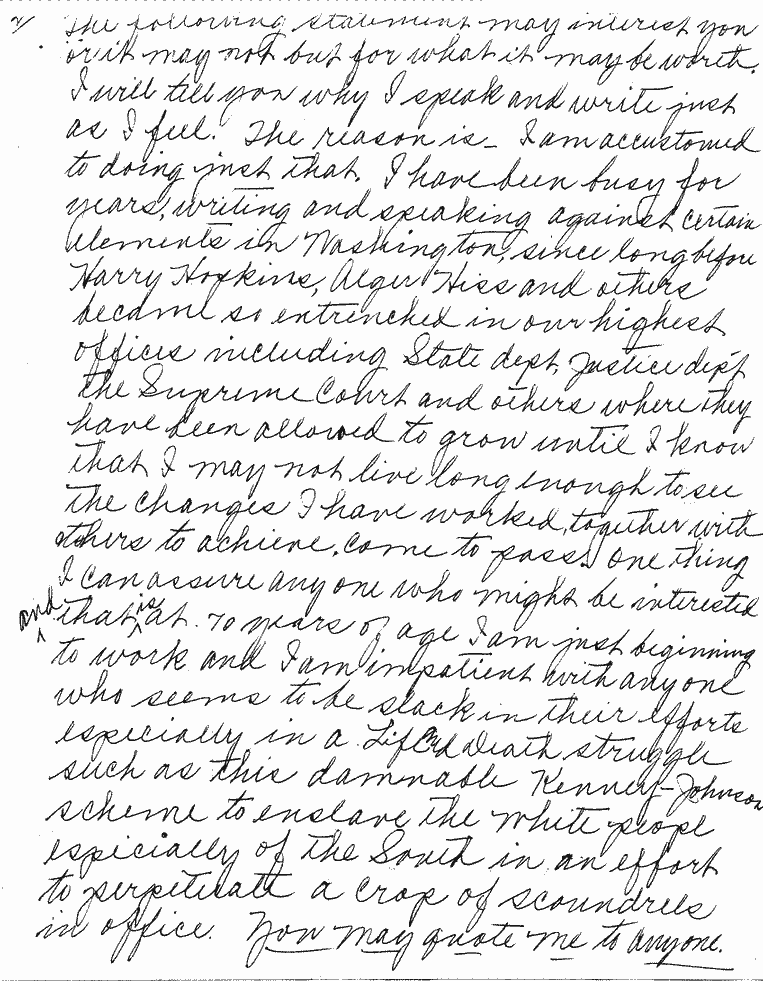 2/ The following statement may interest you
or it may not but for what it may be worth.
I will till you why I speak and write just
as I feel. The reason is - I am accustomed
to doing just that. I have been busy for
years, writing and speaking against certain
elements in Washington, since long before
Harry Hopkins, Alger Hiss and others
became so entrenched in our highest
offices including State dept, Justice dep't
the Supreme Court and others where they
have been allowed to grow until I know
that I may not live long enough to see
the changes I have worked, together with
others to achieve, come to pass. One thing
I can assure anyone who might be interested
and that is at 70 years of age I am just beginning
to work and I am impatient with anyone
who seems to be slack in their efforts
especially in a Life and Death struggle
such as this damnable Kennery-Johnson
scheme to enslave the White peopl
especially of the South in an effort
to perpetuate a crop of scoundrels
in office. You may quote me to anyone.